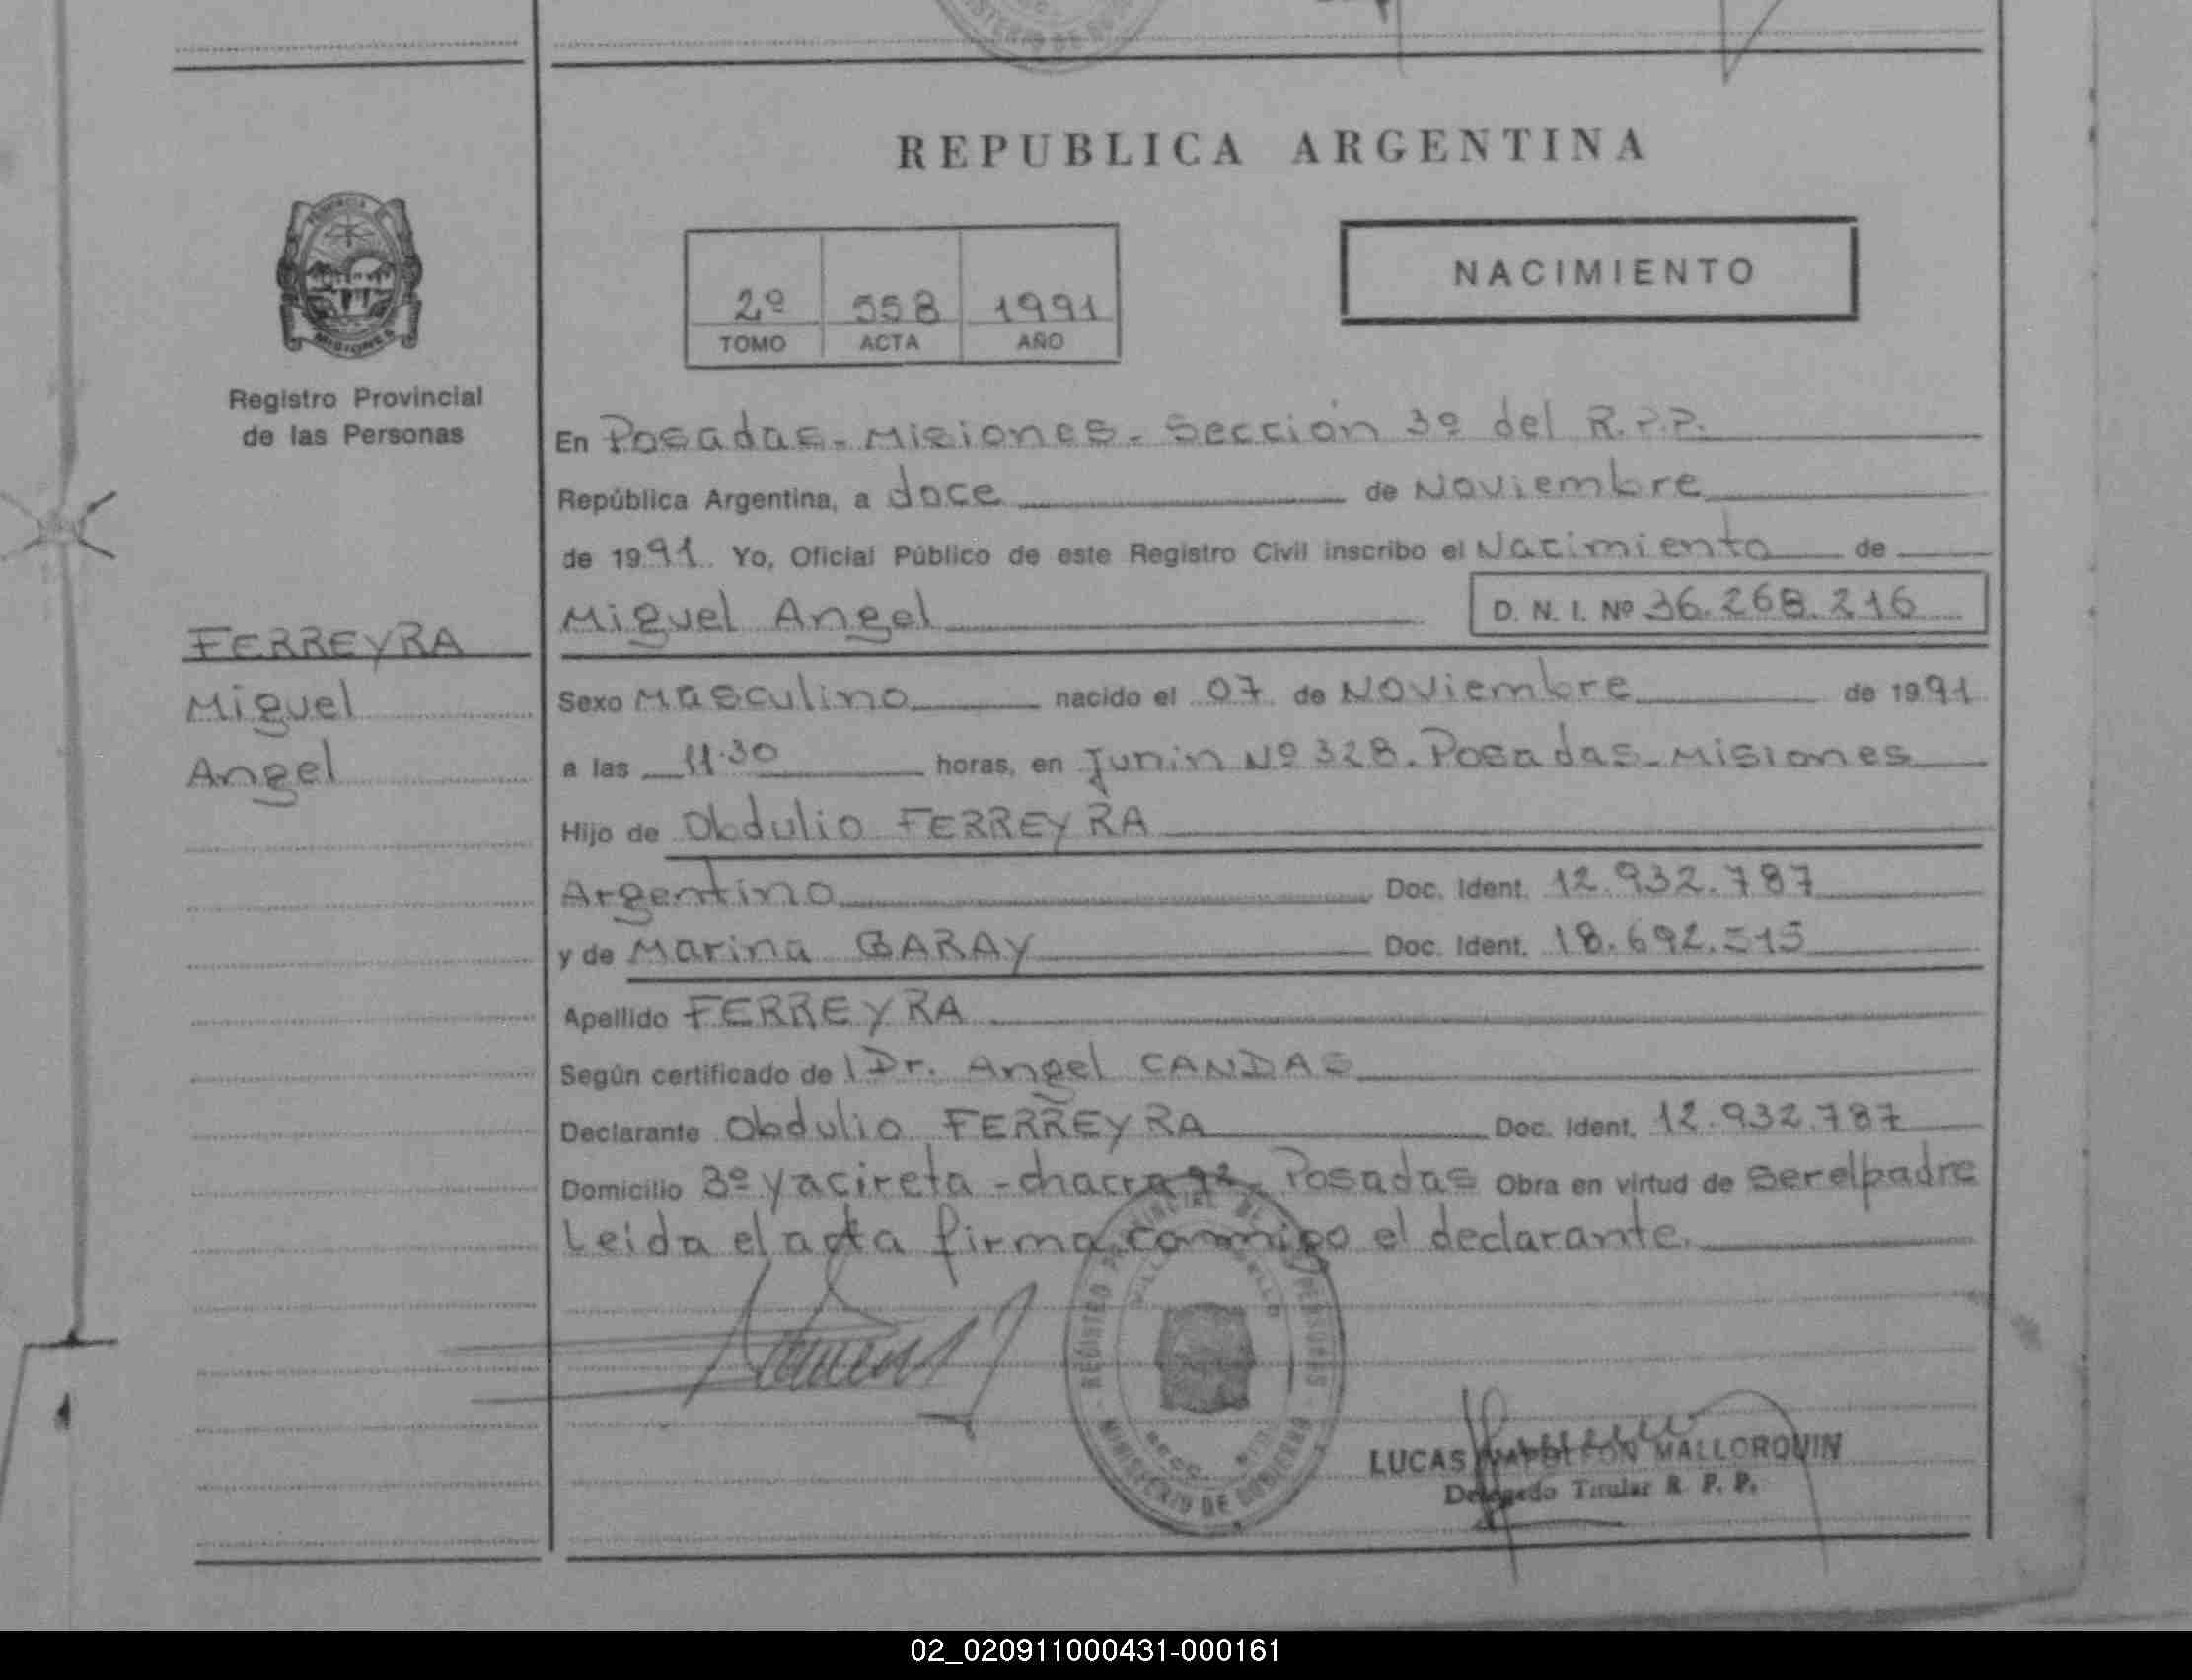 REPUBLICA ARGENTINA
NACIMIENTO
2º 558 1991
TOMO ACTA AÑO
PROVINCIA DE
MISIONES
Registro Provincial
de las Personas
FERREYRA
Miguel
Angel
En Posadas - Misiones - Sección 3º del R.P.P.
República Argentina, a doce de Noviembre
de 1991. Yo, Oficial Público de este Registro Civil inscribo el Nacimiento de
Miguel Angel D. N. I. Nº 36.268.216
Sexo Masculino nacido el 07 de Noviembre de 1991
a las 11.30 horas, en Junin Nº 328. Posadas - Misiones
Hijo de Obdulio FERREYRA
Argentino Doc. Ident. 12.932.787
y de Marina GARAY Doc. Ident. 18.692.515
Apellido FERREYRA
Según certificado de l Dr. Angel CANDAS
Declarante Obdulio FERREYRA Doc. Ident. 12.932.787
Domicilio 3º yacireta - chacra Posadas Obra en virtud de ser el padre
Leida el acta firma conmigo el declarante.
REGISTRO PROVINCIAL DE LAS PERSONAS
MINISTERIO DE GOBIERNO
LUCAS NAPOLEON MALLORQUIN
Delegado Titular R. P. P.
02_020911000431-000161